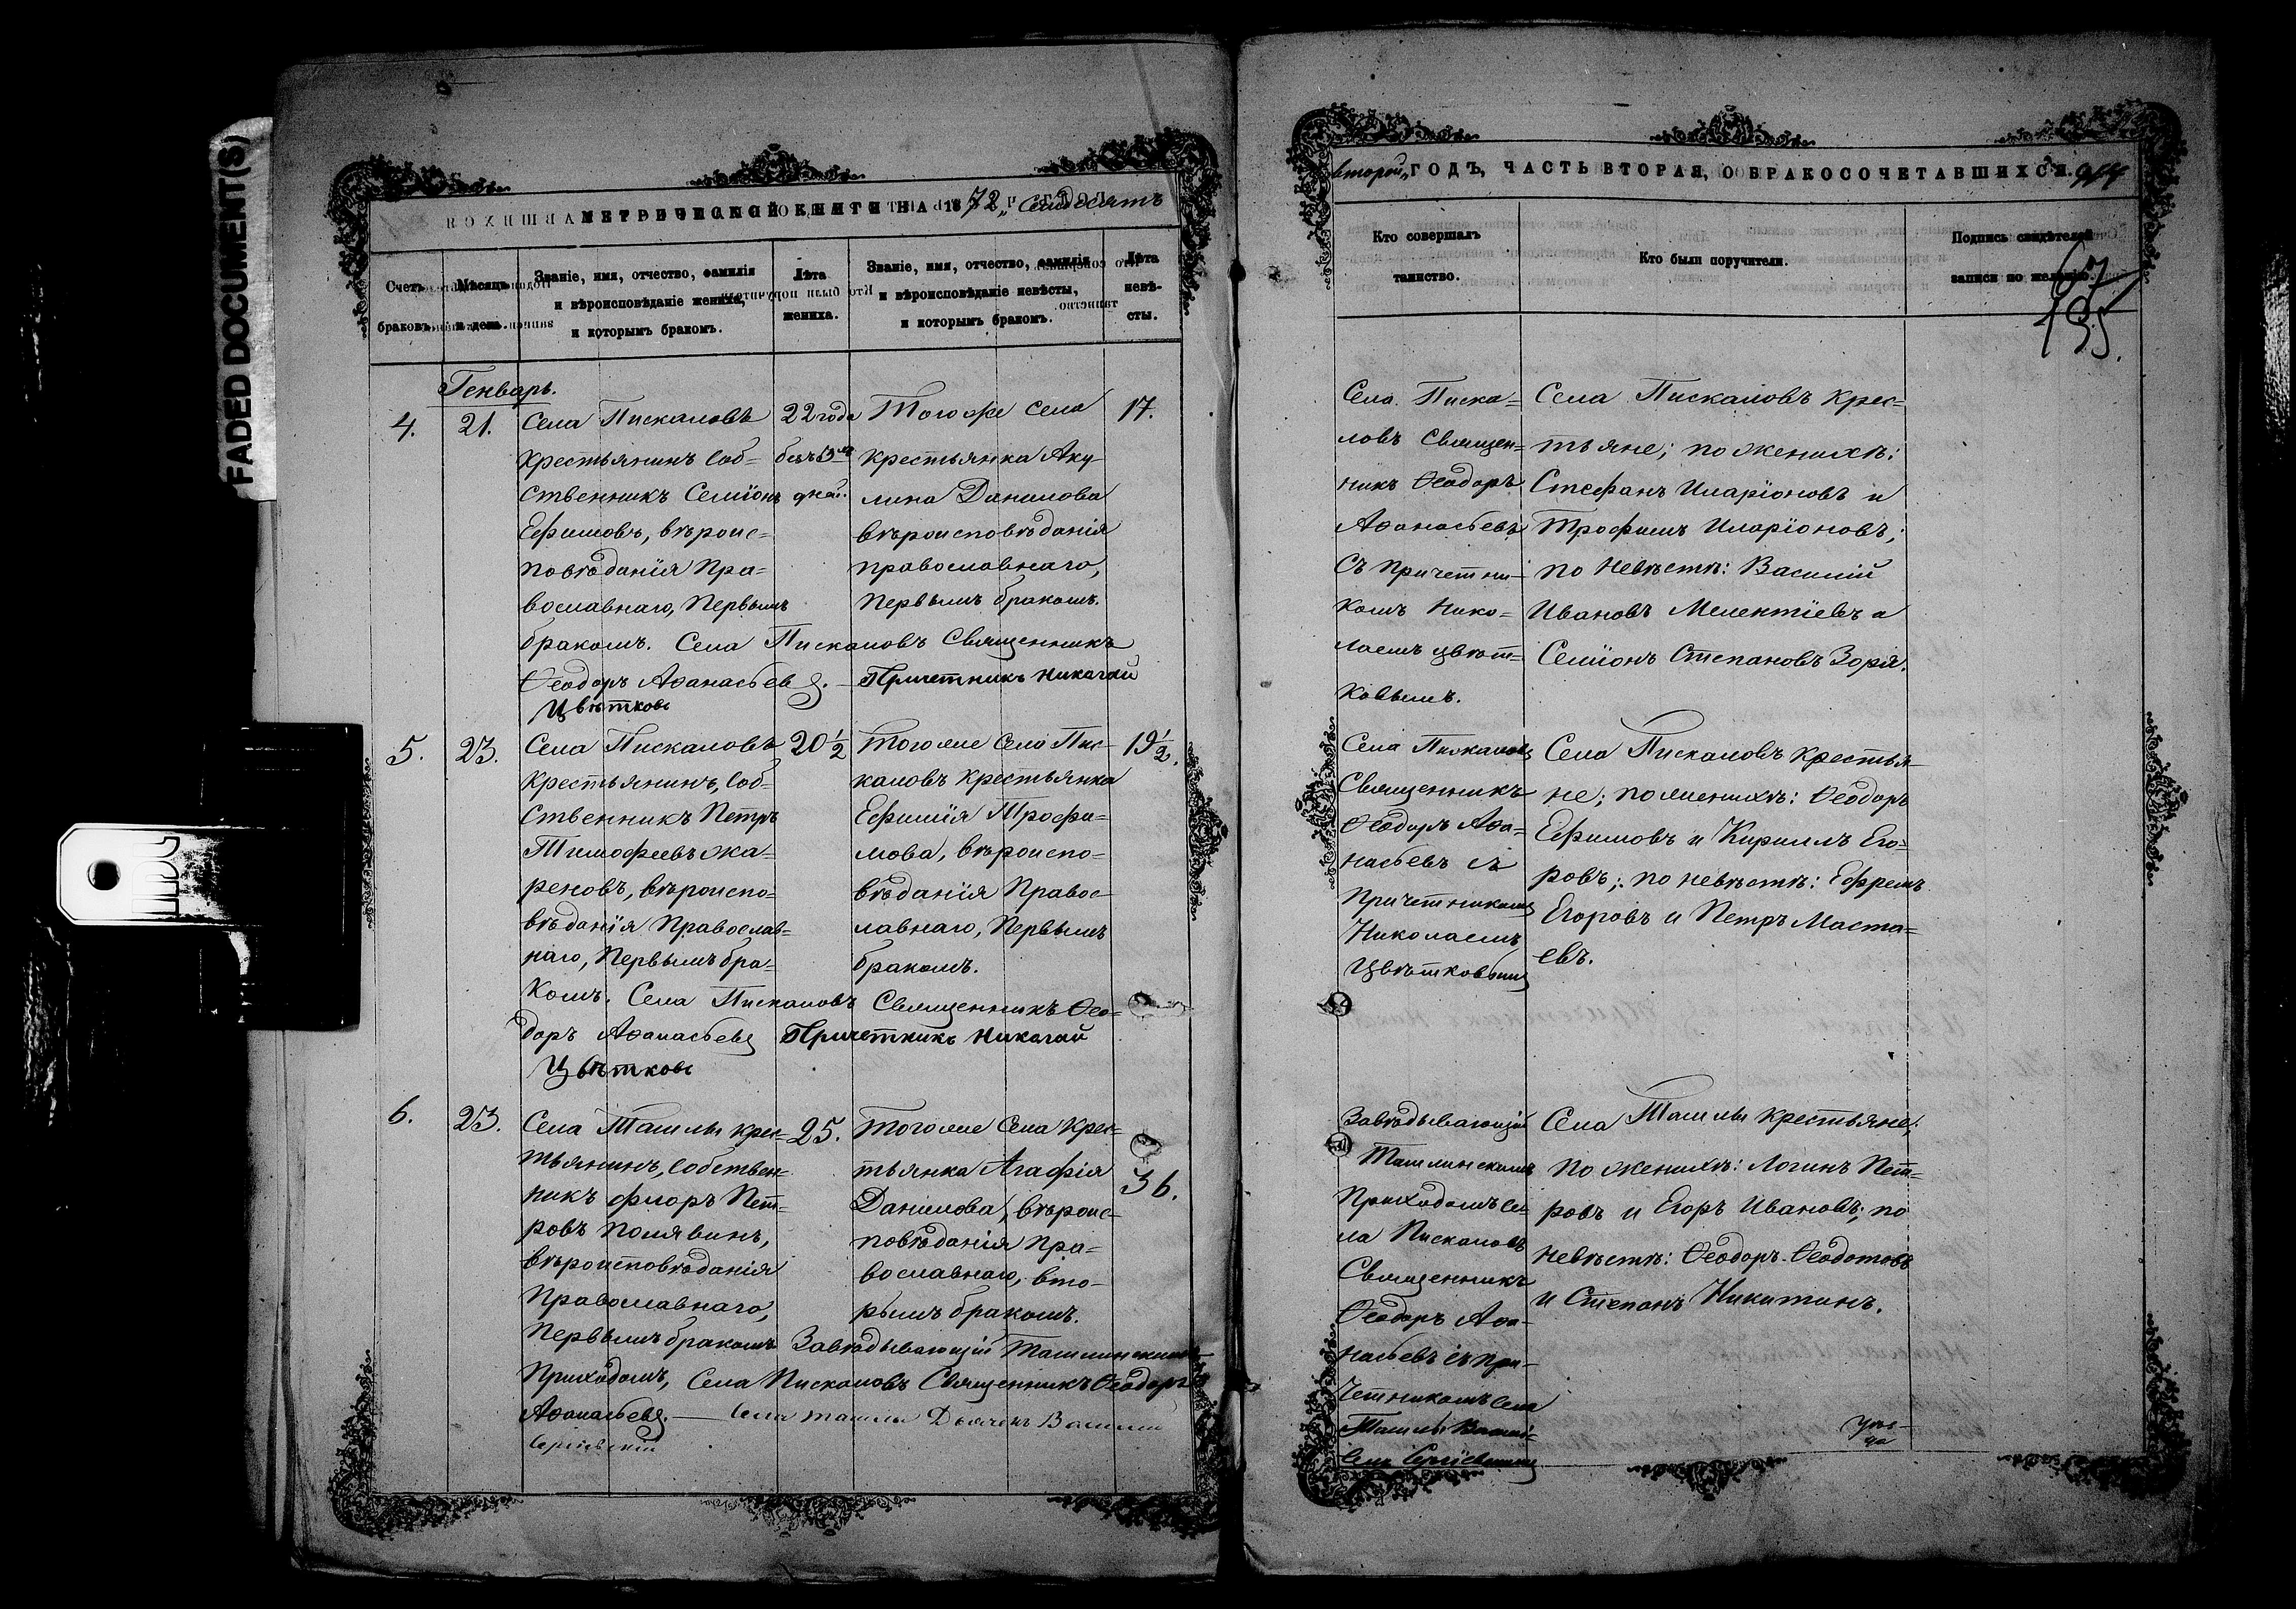 FADED DOCUMENT(S)
МЕТРИЧЕСКОЙ КНИГИ НА 1872, Семдесятъ
Счетъ браковъ.
Мѣсяцъ и день.
Званіе, имя, отчество, фамилія
и вѣроисповѣданіе жениха,
и которымъ бракомъ.
Лѣта
жениха.
Званіе, имя, отчество, фамилія
и вѣроисповѣданіе невѣсты,
и которымъ бракомъ.
Лѣта
невѣ-
сты.
Генварь.
4.
21.
Села Пискаловъ
Крестьянинъ соб=
ственникъ Семіонъ
Ефимовъ, вѣроис=
повѣданія Пра=
вославнаго, Первымъ
бракомъ. Села Пискаловъ Священникъ
Ѳеодоръ Аѳанасьевъ. — Причетникъ Николай
Цвѣтковъ
22 года
безъ
дней.
Того же села
Крестьянка Аку-
лина Данилова
вѣроисповѣданія
православнаго,
Первымъ бракомъ.
17.
5.
23.
Села Пискаловъ
Крестьянинъ, соб=
ственникъ Петръ
Тимофеевъ Жа=
реновъ, вѣроиспо=
вѣданія Православ=
наго, Первымъ бра=
комъ. Села Пискаловъ Священникъ Ѳео=
доръ Аѳанасьевъ Причетникъ Николай
Цвѣтковъ
20 1/2
Того же Села Пис-
каловъ Крестьянка
Ефимія Трофи=
мова, вѣроиспо=
вѣданія Правос=
лавнаго, Первымъ
бракомъ.
19 1/2.
6.
23.
Села Ташлы крес=
тьянинъ, собствен=
никъ Флоръ Пет=
ровъ Полявинъ,
вѣроисповѣданія
Православнаго,
Первымъ бракомъ Завѣдывающій Ташлинскимъ
Приходомъ, Села Пискаловъ Священникъ Ѳеодоръ
Аѳанасьевъ. — Села Ташлы Дьячекъ Василій
Сергіевскій
25.
Того же Села Крес=
тьянка Агафія
Данилова, вѣроис=
повѣданія Пра=
вославнаго, вто=
рымъ бракомъ.
36.
второй, ГОДЪ, ЧАСТЬ ВТОРАЯ, О БРАКОСОЧЕТАВШИХСЯ.
Кто совершалъ
таинство.
Кто были поручители.
Подпись свидѣтелей
записи по желанію.
67
195.
Села Писка=
ловъ Священ=
никъ Ѳеодоръ
Аѳанасьевъ
съ Причетни-
комъ Нико=
лаемъ Цвѣт=
ковымъ.
Села Пискаловъ Крес=
тьяне; по женихѣ:
Стефанъ Иларіоновъ и
Трофимъ Иларіоновъ;
по невѣстѣ: Василій
Ивановъ Мелентіевъ и
Семіонъ Степановъ Зоря.
Села Пискаловъ
Священникъ
Ѳеодоръ Аѳа=
насьевъ съ
Причетникомъ
Николаемъ
Цвѣтковымъ
Села Пискаловъ Крестья-
не; по женихѣ: Ѳеодоръ
Ефимовъ и Кириллъ Его=
ровъ; по невѣстѣ: Ефремъ
Егоровъ и Петръ Маста=
евъ.
Завѣдывающій
Ташлинскимъ
Приходомъ Се=
ла Пискаловъ
Священникъ
Ѳеодоръ Аѳа-
насьевъ съ при-
четникомъ Села
Ташлы Васи=
Села Ташлы Крестьяне;
по женихѣ: Логинъ Пет=
ровъ и Егоръ Ивановъ; по
невѣстѣ: Ѳеодоръ Ѳеодотовъ
и Степанъ Никитинъ.